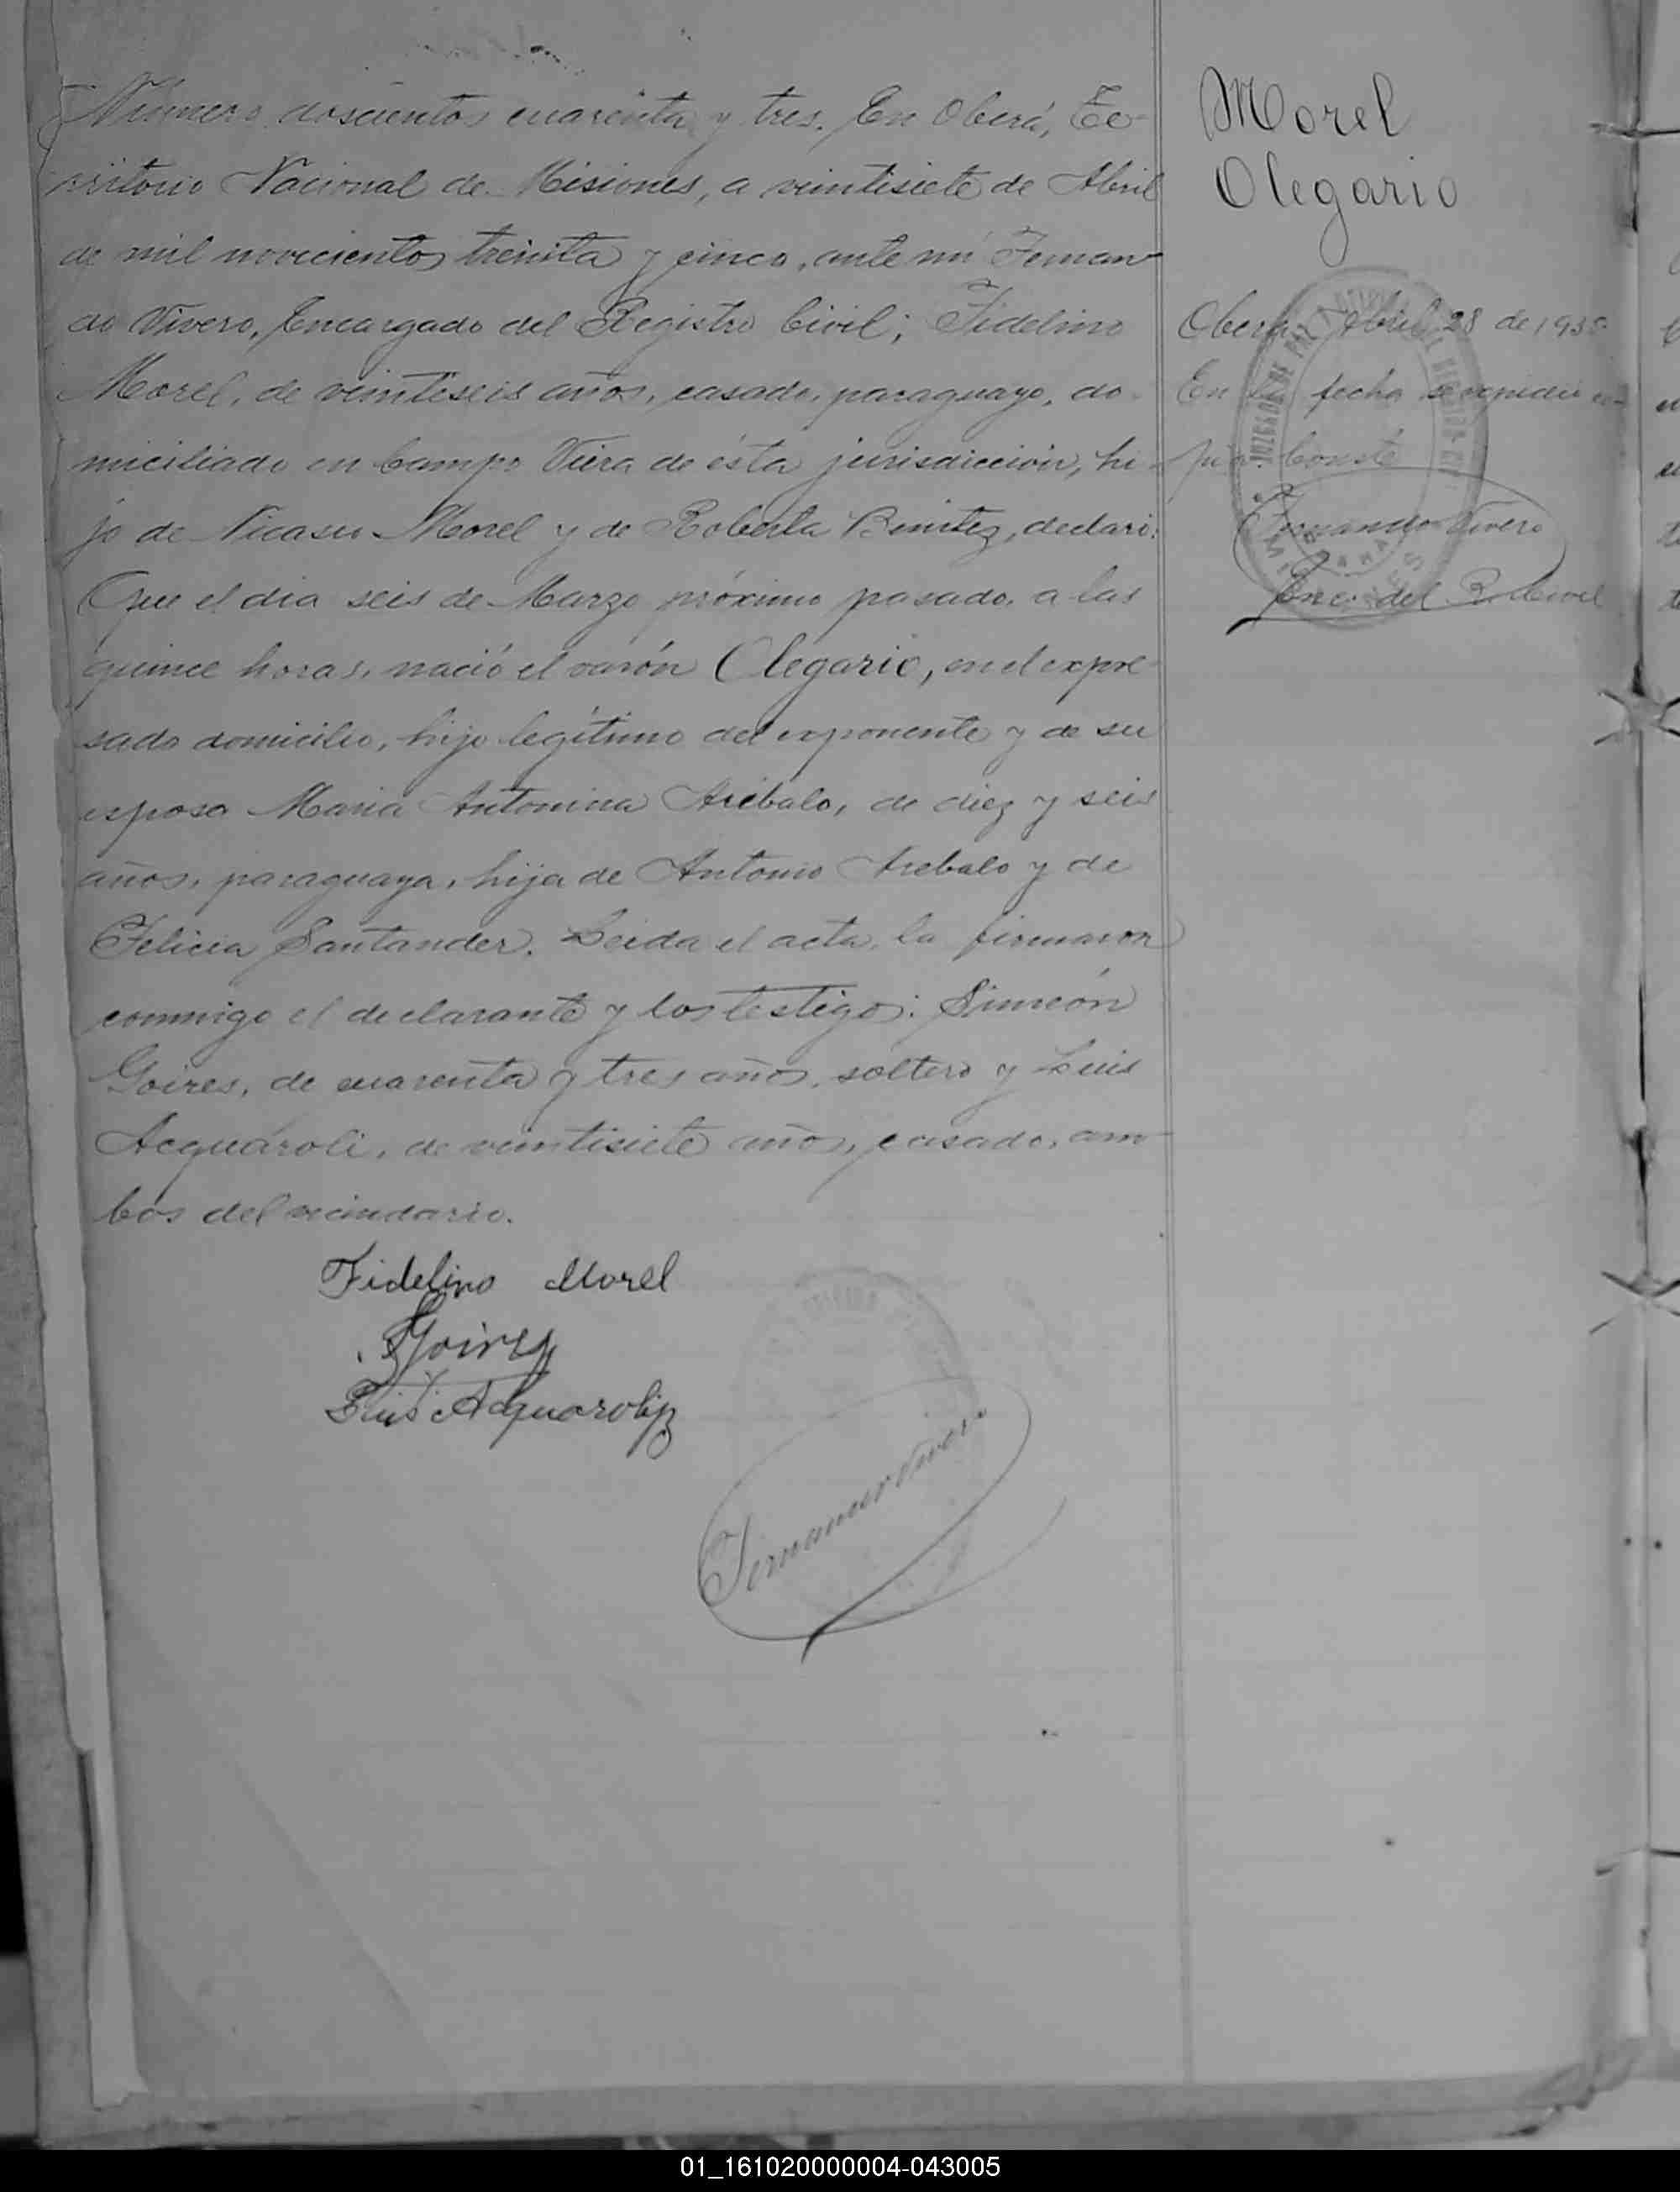 Número doscientos cuarenta y tres. En Oberá, Te-
rritorio Nacional de Misiones, a veintisiete de Abril
de mil novecientos treinta y cinco, ante mí Fernan-
do Vivero, Encargado del Registro Civil; Fidelino
Morel, de veintiseis años, casado, paraguayo, do-
miciliado en Campo Viera de ésta jurisdicción, hi-
jo de Nicasio Morel y de Roberta Benitez, declaró:
Que el dia seis de Marzo próximo pasado, a las
quince horas, nació el varón Olegario, en el expre-
sado domicilio, hijo legítimo del exponente y de su
esposa Maria Antonina Arébalo, de diez y seis
años, paraguaya, hija de Antonio Arebalo y de
Felicia Santander. Leida el acta, la firmaron
conmigo el declarante y los testigos: Simeón
Goires, de cuarenta y tres años, soltero y Luis
Acquároli, de veintisiete años, casado, am-
bos del vecindario.
Fidelino Morel
Luis Acquaroli
Fernando Vivero
Morel
Olegario
Oberá, Abril 28 de 1935
En la fecha se expidió co-
pia. Conste
Fernando Vivero
Enc. del R. Civil
01_161020000004-043005